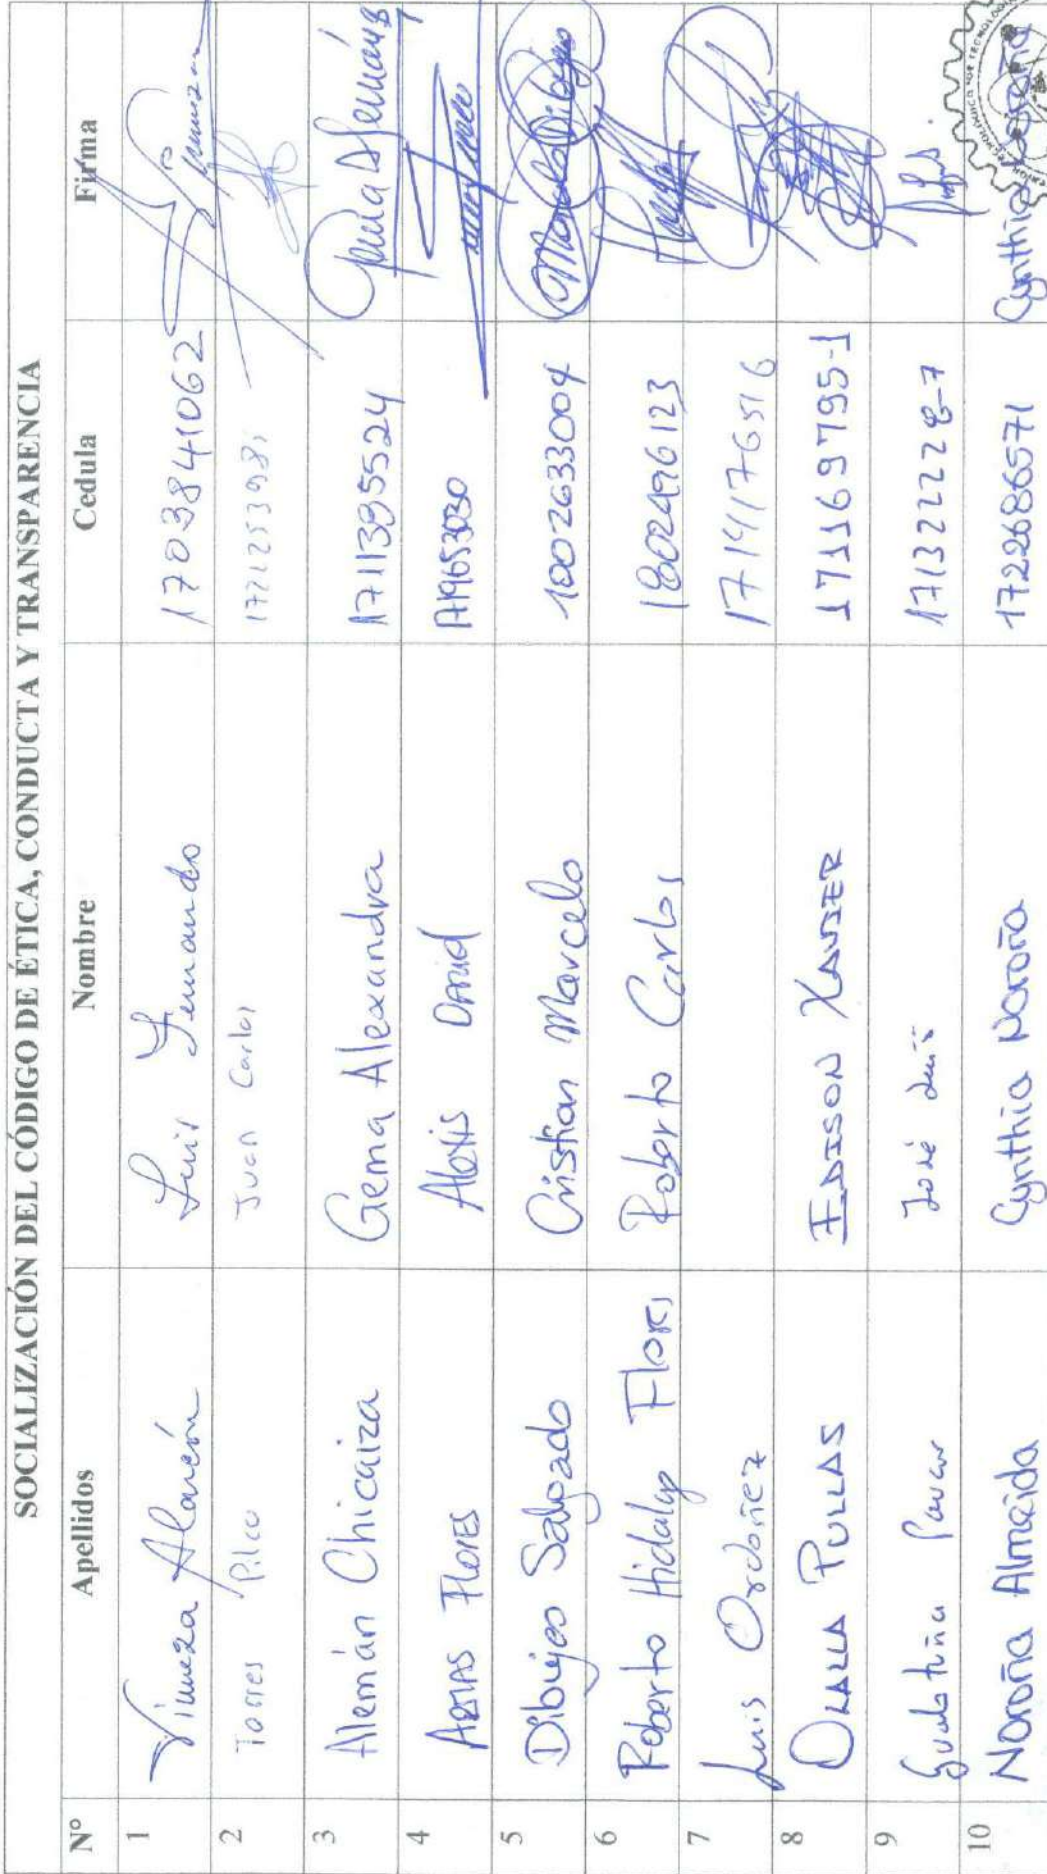 SOCIALIZACIÓN DEL CÓDIGO DE ÉTICA, CONDUCTA Y TRANSPARENCIA
N° Apellidos Nombre Cedula Firma
1 Alarcón Luis 1703841062
2 Torres Pilco Juan Carlos
3 Alemán Chicaiza Gema Alexandra 1711385524
4 ARMAS FLORES Alexis David
5 Dibujes Salgado Cristian Marcelo 1002633004 Marcelo Dibujes
6 Roberto Hidalgo Flores Roberto Carlos
7 Luis Ordoñez 1714176516
8 OLALLA PULLAS EDISON XAVIER 171169795-1
9 José 171322228-7
10 Noroña Almeida Cynthia Noroña 1722686571 Cynthia Noroña